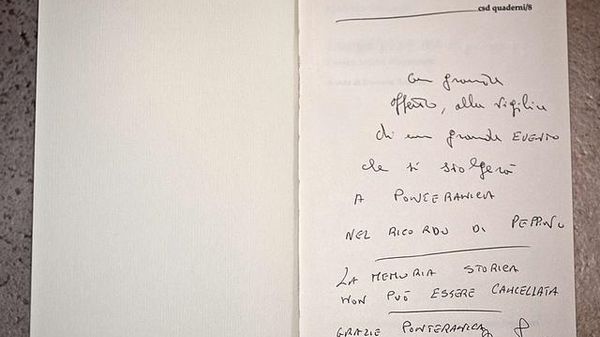 csd quaderni/8
con grande
affetto, alla vigilia
di un grande EVENTO
che si svolgerà
A PONTERANICA
NEL RICORDO DI PEPPINO
LA MEMORIA STORICA
NON PUÒ ESSERE CANCELLATA
GRAZIE PONTERANICA